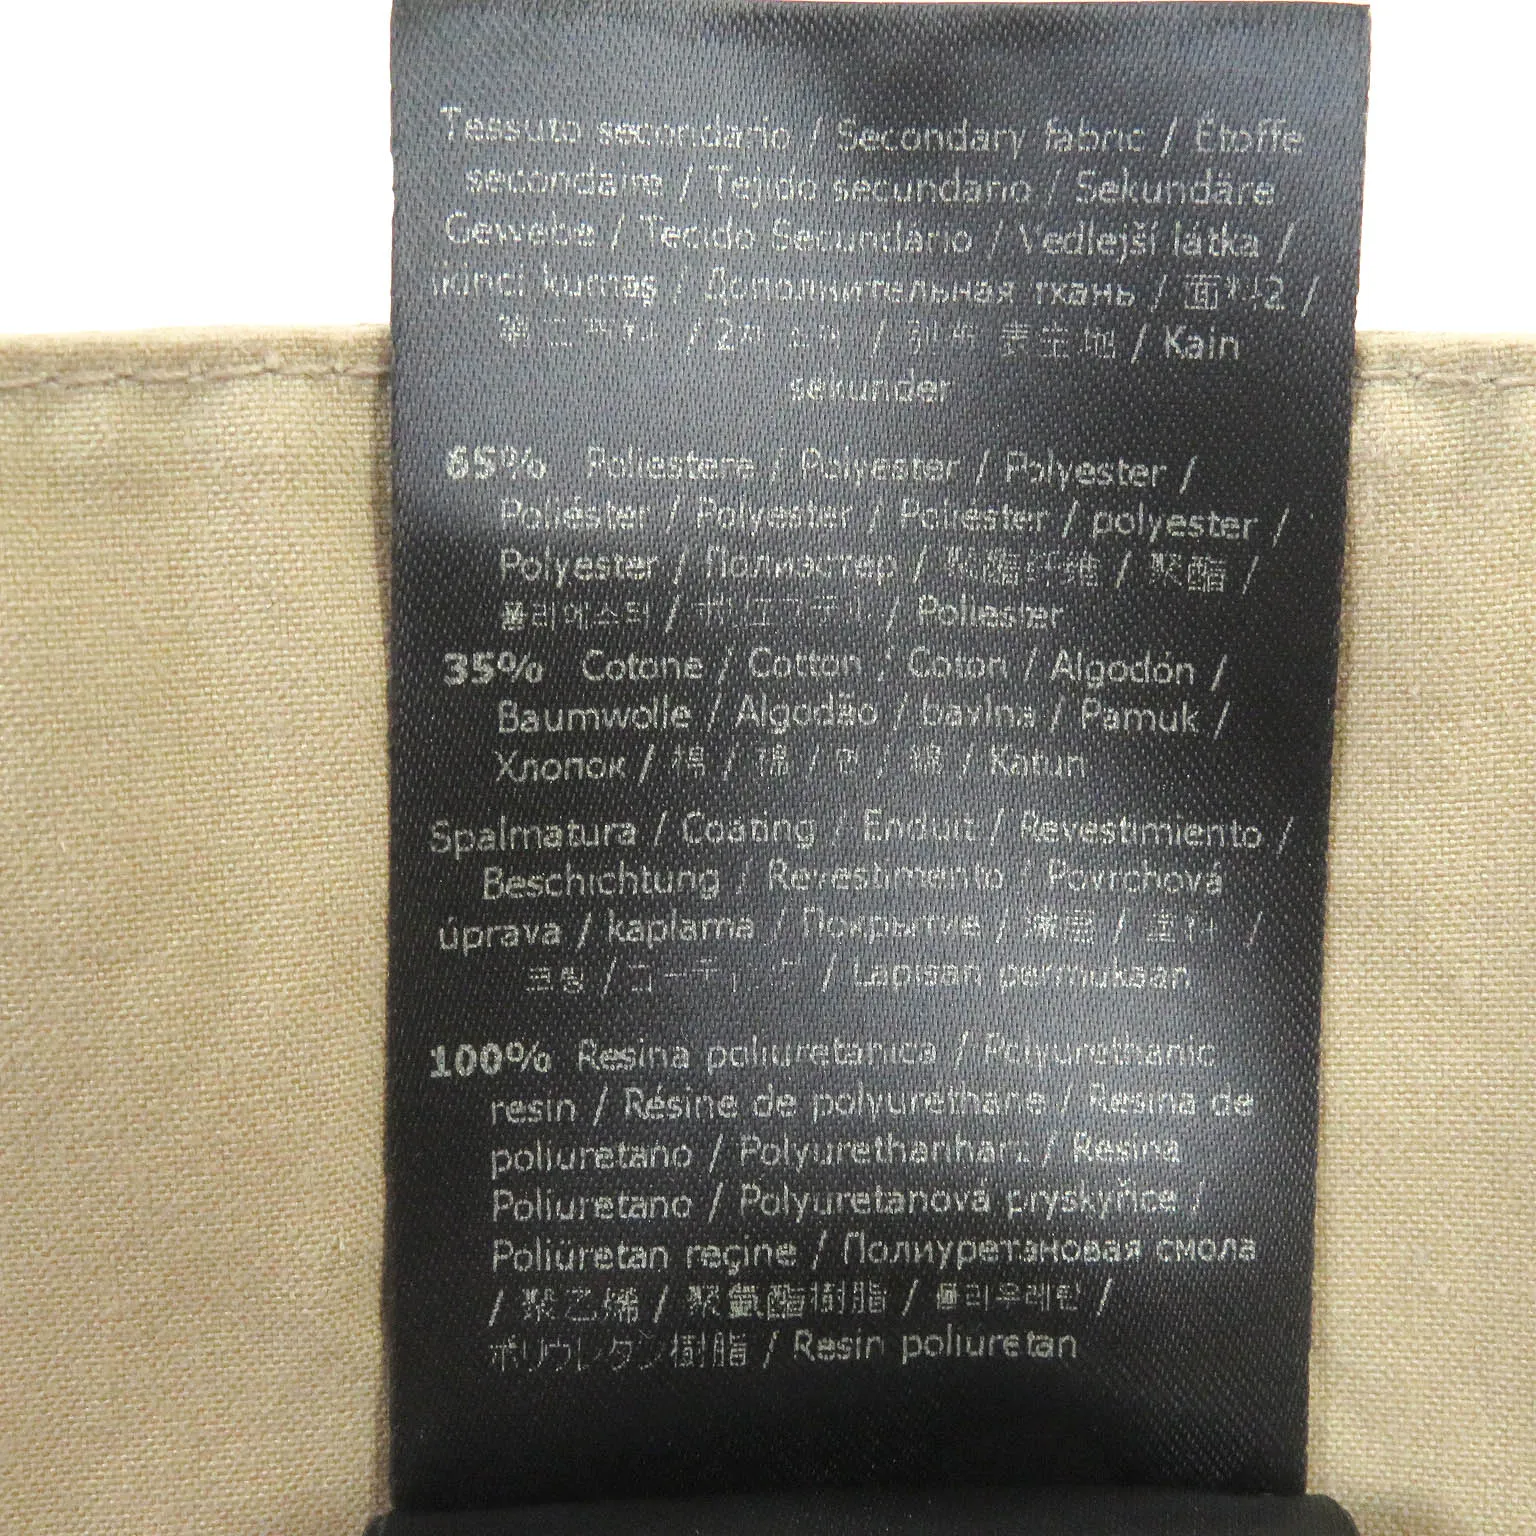 Tessuto secondario / Secondary fabric / Étoffe
secondaire / Tejido secundario / Sekundäre
Gewebe / Tecido Secundário / Vedlejší látka /
ikinci kumaş / Дополнительная ткань / 面料2 /
/ Kain
sekunder
65% Poliestere / Polyester / Polyester /
Poliéster / Polyester / Poliéster / polyester /
Polyester / Полиэстер / 聚酯纤维 / 聚酯 /
폴리에스터 / ポリエステル / Poliester
35% Cotone / Cotton / Coton / Algodón /
Baumwolle / Algodão / bavlna / Pamuk /
Хлопок / 棉 / 棉 / 면 / 綿 / Katun
Spalmatura / Coating / Enduit / Revestimiento /
Beschichtung / Revestimento / Povrchová
úprava / kaplama / Покрытие /
코팅 / コーティング / Lapisan permukaan
100% Resina poliuretanica / Polyurethanic
resin / Résine de polyurethane / Resina de
poliuretano / Polyurethanharz / Resina
Poliuretano / Polyuretanová pryskyřice /
Poliüretan reçine / Полиуретановая смола
/ 聚乙烯 / 聚氨酯樹脂 / 폴리우레탄 /
ポリウレタン樹脂 / Resin poliuretan